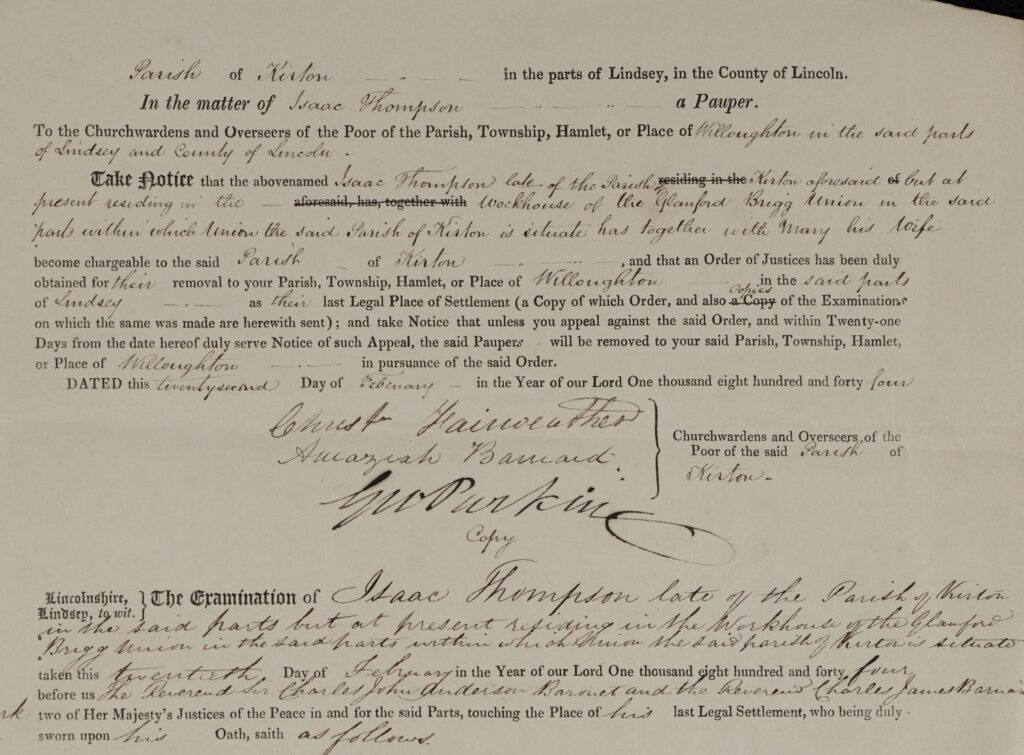 Parish of Kirton in the parts of Lindsey, in the County of Lincoln.
In the matter of Isaac Thompson a Pauper.
To the Churchwardens and Overseers of the Poor of the Parish, Township, Hamlet, or Place of Willoughton in the said parts
of Lindsey and County of Lincoln.
Take Notice that the abovenamed Isaac Thompson late of the Parish of residing in the Kirton aforesaid of but at
present residing in the aforesaid, has, together with Workhouse of the Glanford Brigg Union in the said
parts within which Union the said Parish of Kirton is situate has together with Mary his Wife
become chargeable to the said Parish of Kirton, and that an Order of Justices has been duly
obtained for their removal to your Parish, Township, Hamlet, or Place of Willoughton in the said parts
of Lindsey as their last Legal Place of Settlement (a Copy of which Order, and also a Copy Copies of the Examinations
on which the same was made are herewith sent); and take Notice that unless you appeal against the said Order, and within Twenty-one
Days from the date hereof duly serve Notice of such Appeal, the said Paupers will be removed to your said Parish, Township, Hamlet,
or Place of Willoughton in pursuance of the said Order.
DATED this twenty second Day of February in the Year of our Lord One thousand eight hundred and forty four
Christr Fairweather
Amaziah Barnard
Geo Parkin
Churchwardens and Overseers of the
Poor of the said Parish of
Kirton
Copy
Lincolnshire,
Lindsey, to wit.
The Examination of Isaac Thompson late of the Parish of Kirton
in the said parts but at present residing in the Workhouse of the Glanford
Brigg Union in the said parts within which Union the said parish of Kirton is situate
taken this twentieth Day of February in the Year of our Lord One thousand eight hundred and forty four
before us The Reverend Sir Charles John Anderson Baronet and the Reverend Charles James Barna
two of Her Majesty's Justices of the Peace in and for the said Parts, touching the Place of his last Legal Settlement, who being duly
sworn upon his Oath, saith as follows.